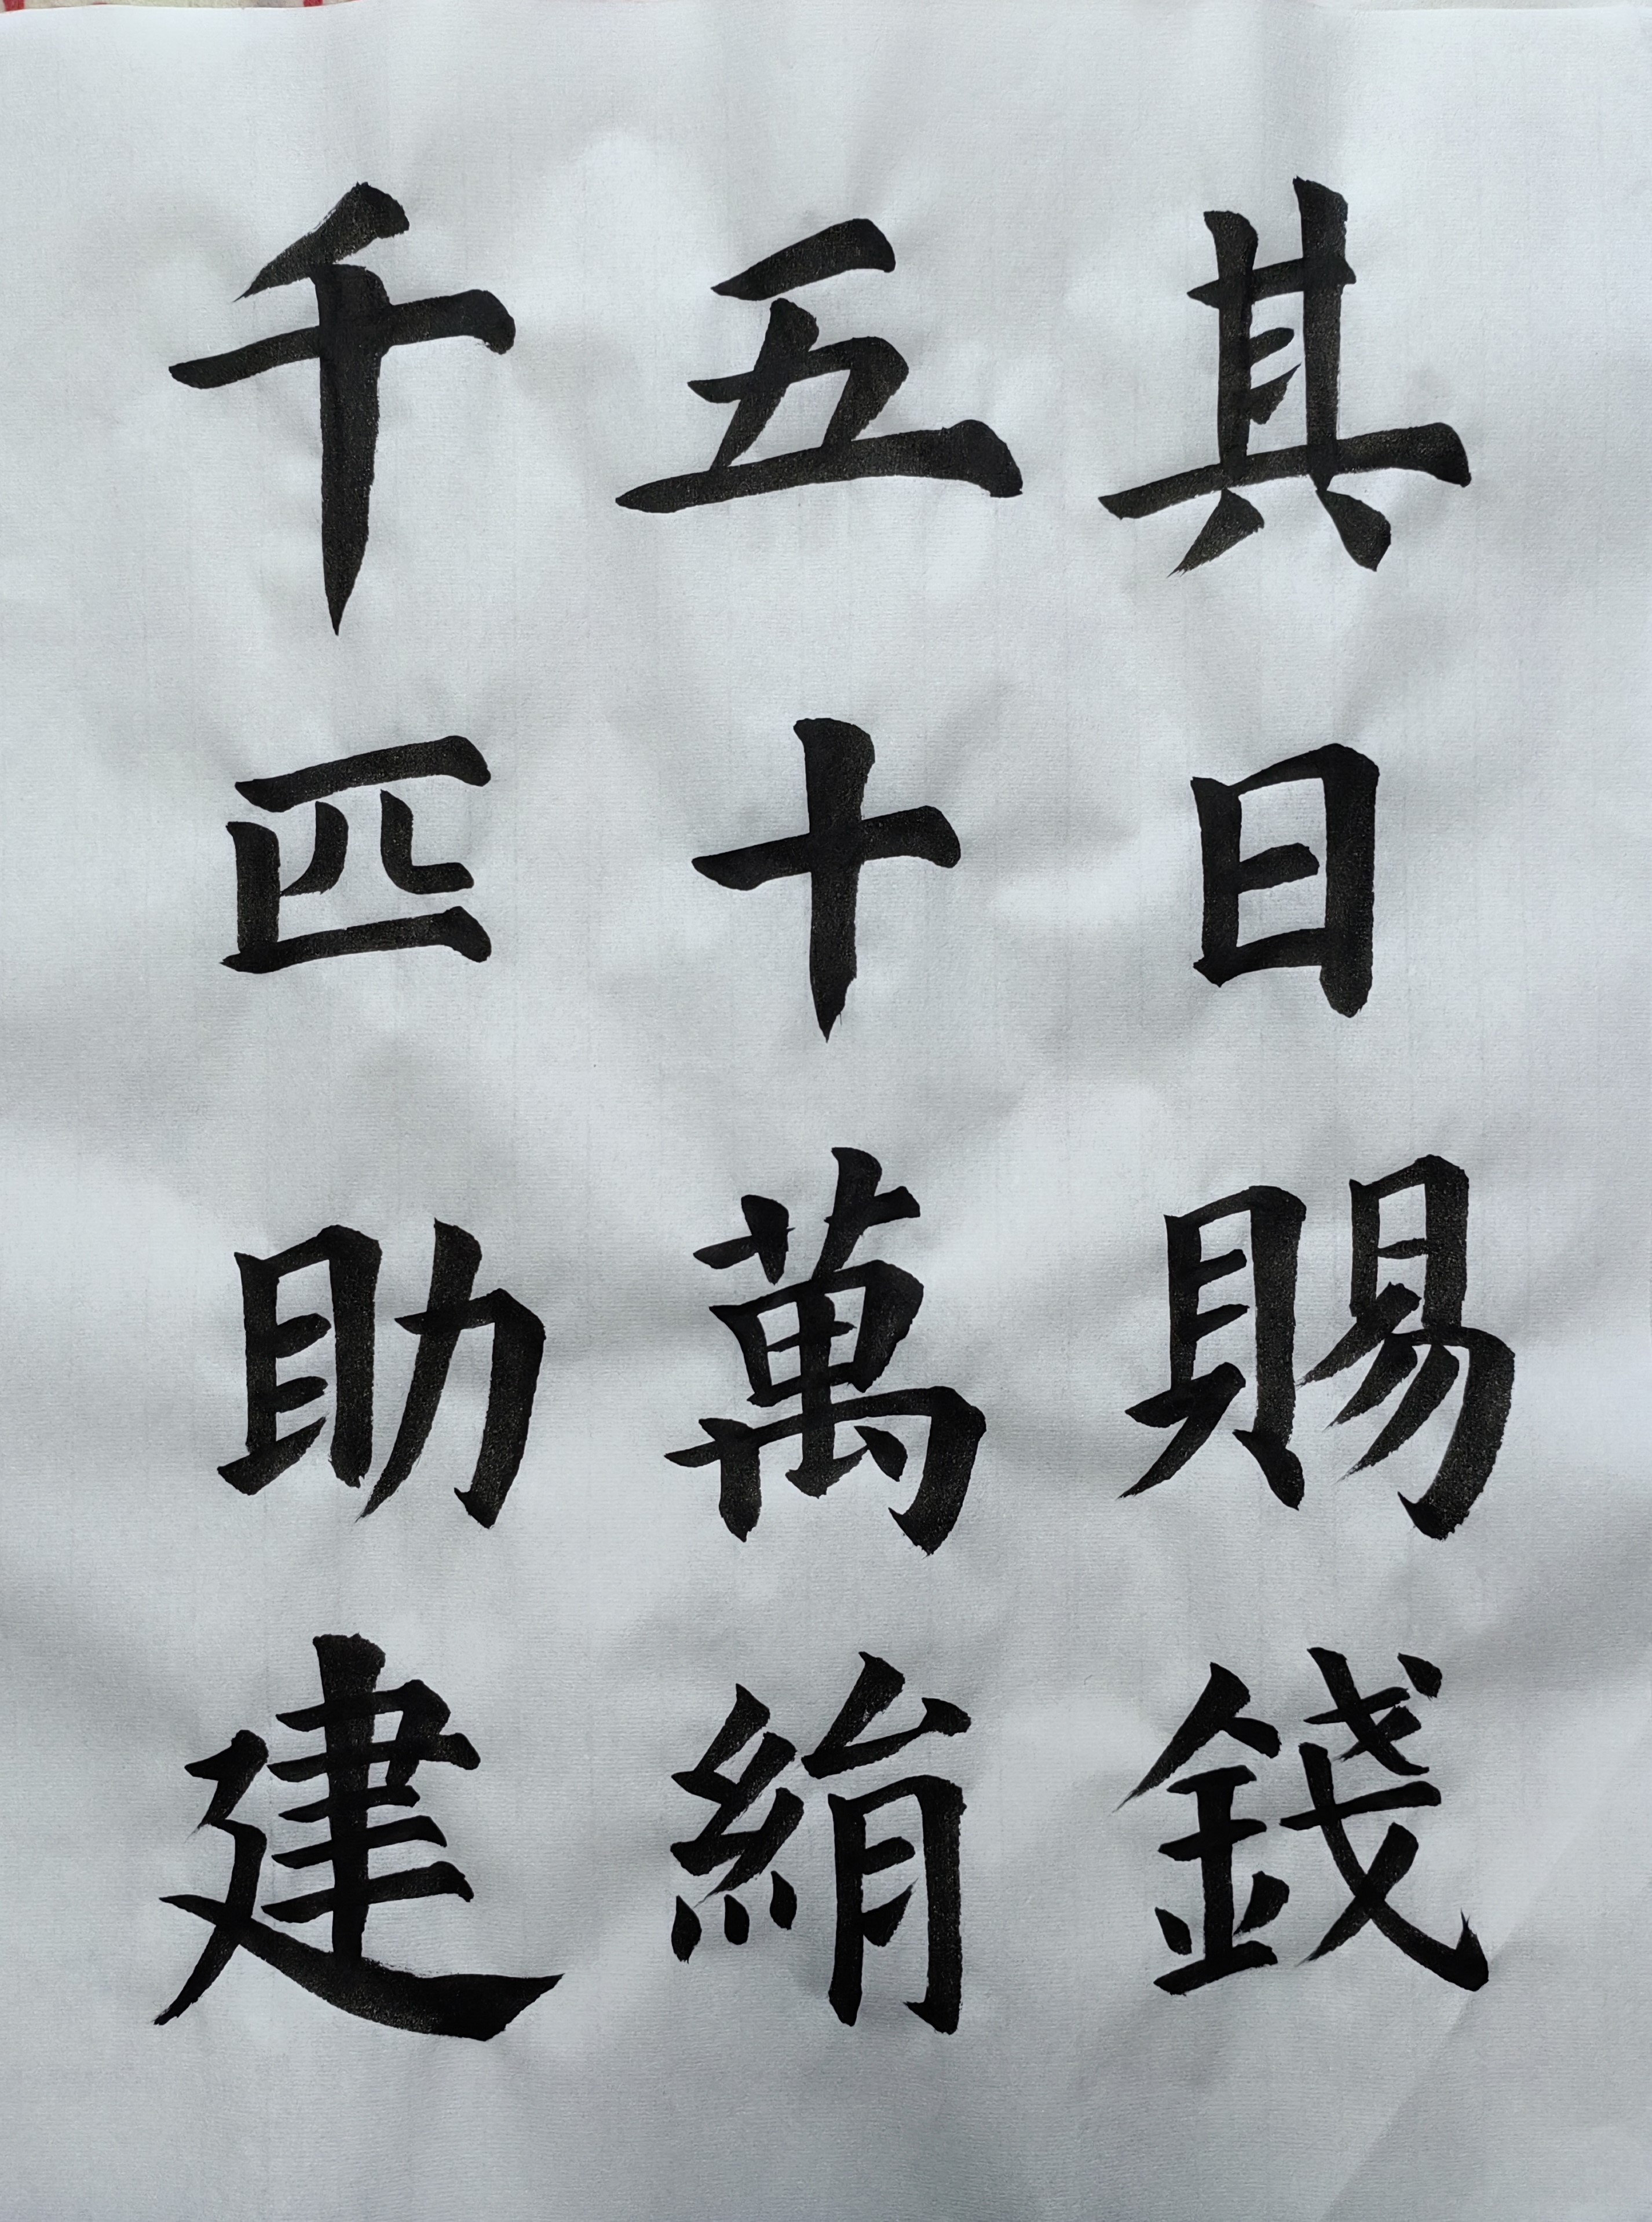 其日賜錢
五十萬絹
千匹助建